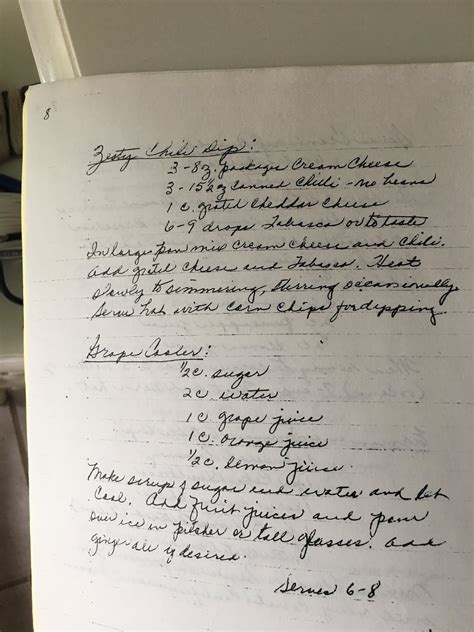 8
Zesty Chili Dip:
3-8oz. packages Cream Cheese
3-15½oz canned Chili - No beans
1 c. grated Cheddar Cheese
6-9 drops Tabasco or to taste
In large pan mix Cream Cheese and Chili.
add grated Cheese and Tabasco. Heat
slowly to simmering, stirring occasionally
Serve hot with Corn Chips for dipping
Grape Cooler:
½ c. sugar
2 c. water
1 c. grape juice
1 c. orange juice
½ c. lemon juice.
Make syrup of sugar and water and let
Cool. Add fruit juices and pour
over ice in pilsner or tall glasses. Add
ginger ale if desired.
Serves 6-8